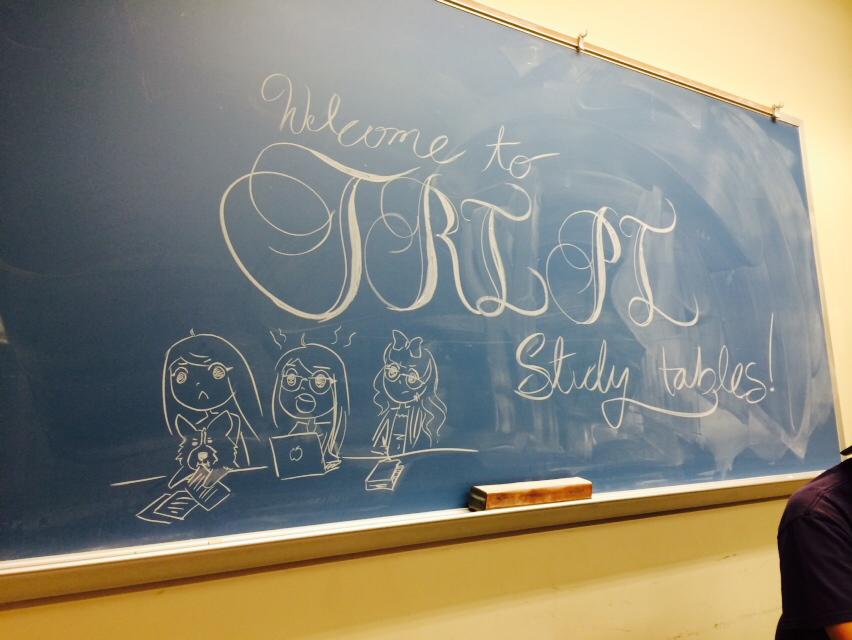 Welcome to
TRI PI
Study tables!